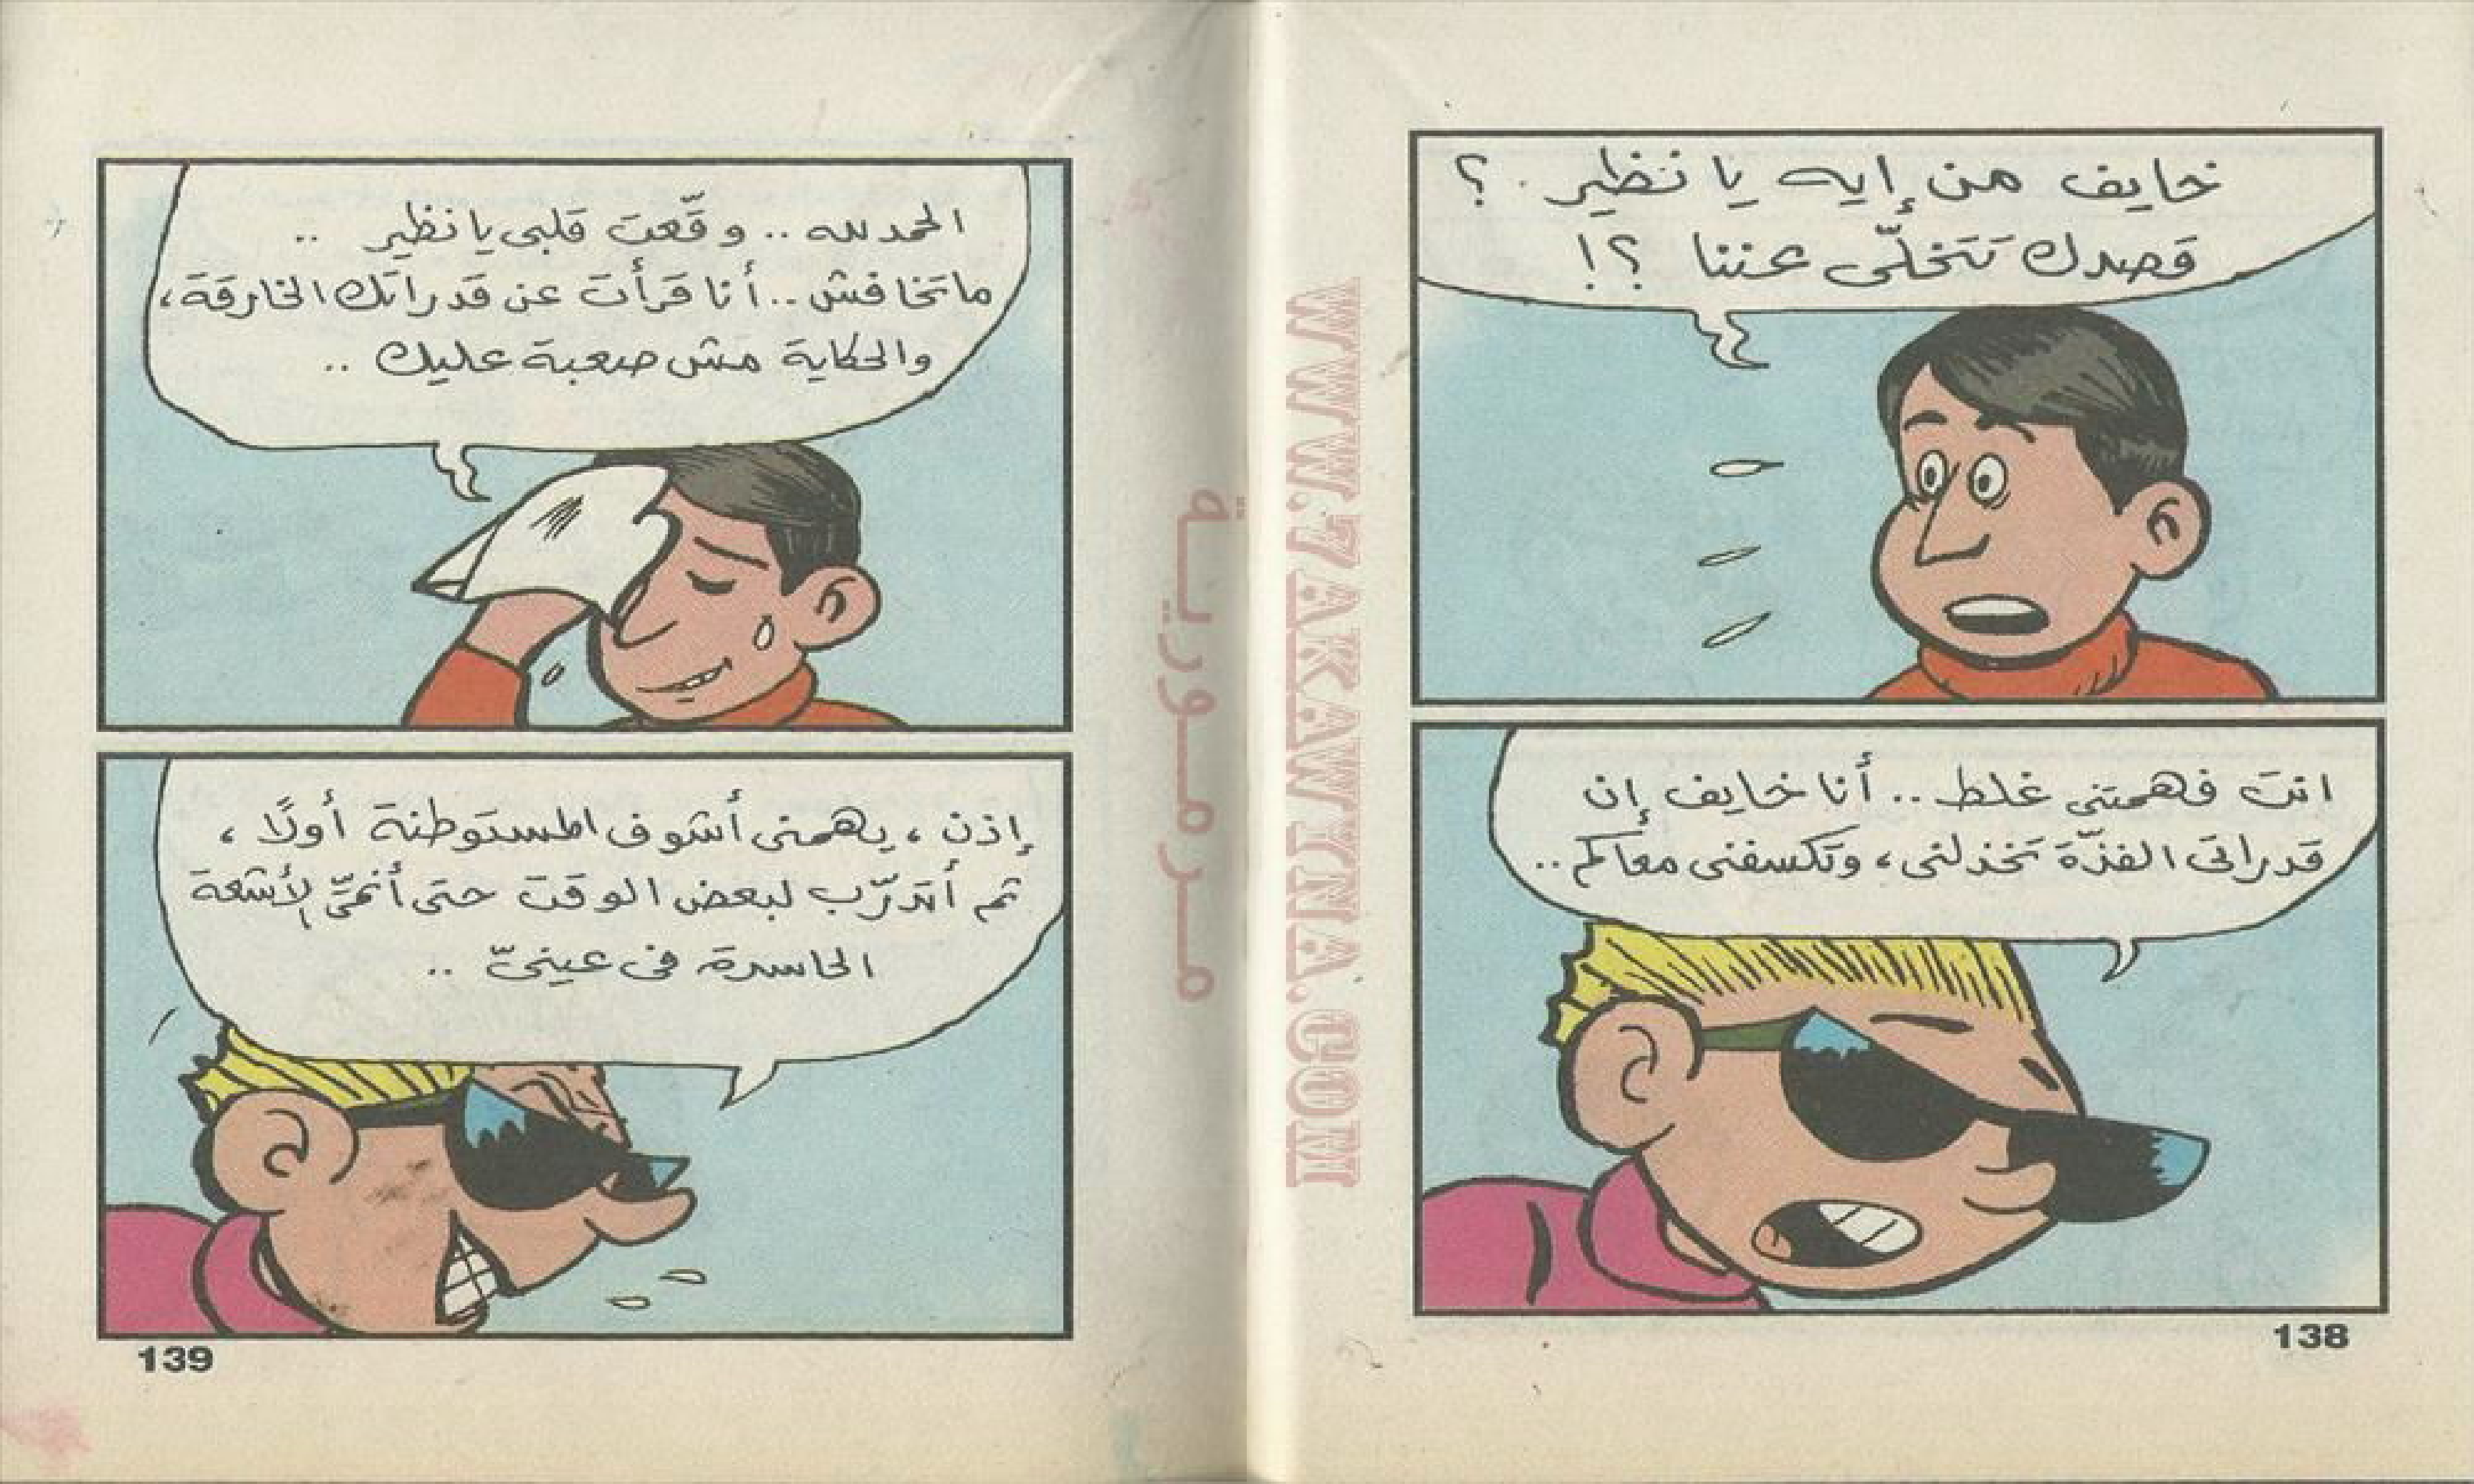 خايف من إيه يا نظير . ؟
قصدك تتخلّى عننا ؟!
انت فهمتنى غلط .. أنا خايف إن
قدراتى الفذّة تخذلنى، وتكسفنى معاكم ..
138
الحمد لله .. وقّعت قلبى يا نظير ..
ماتخافش .. أنا قرأت عن قدراتك الخارقة،
والحكاية مش صعبة عليك ..
إذن، يهمنى أشوف المستوطنة أولًا،
ثم أتدرّب لبعض الوقت حتى أنمّى الأشعة
الحاسدة فى عينىّ ..
139
WWW.7AKAWIINA.COM
مرمورية